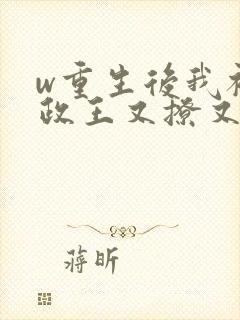 w重生後我
政王又撩又
蒋昕